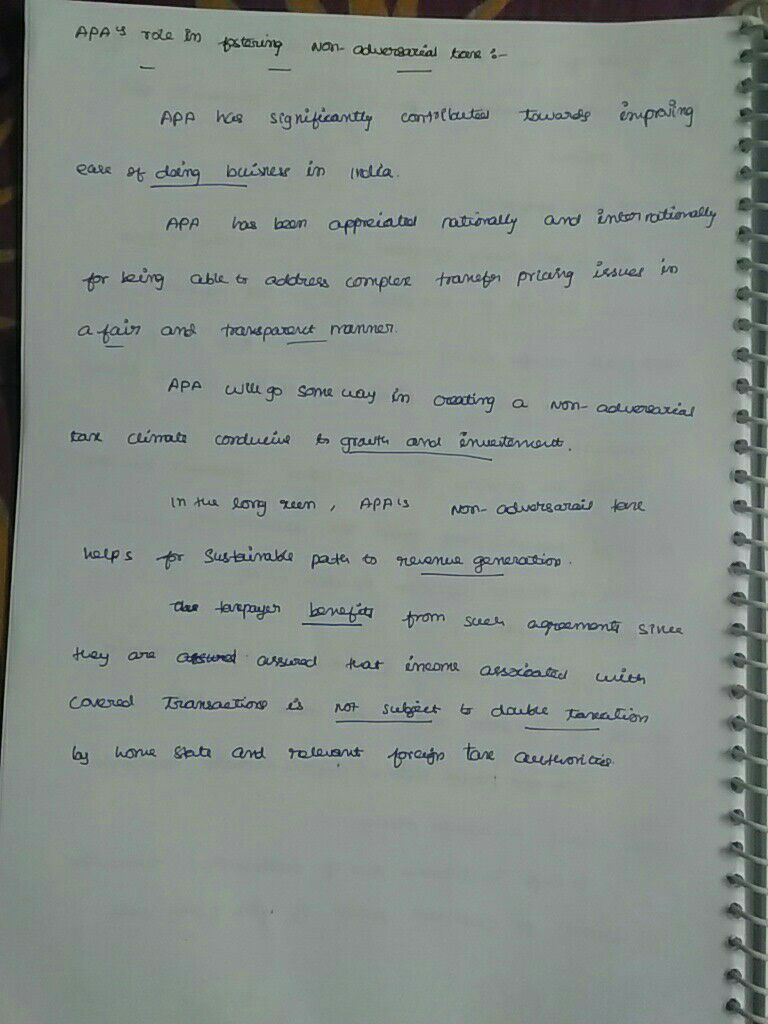 APA's role in fostering non-adversarial taxe :-
APA has significantly contributed towards improving
ease of doing buisness in India.
APA has been appreciated nationally and internationally
for being able to address complex transfer pricing issues in
a fair and transparent manner.
APA will go some way in creating a non-adversarial
tax climate conducive to growth and investement.
In the long reen, APA's non-adversarail taxe
helps for sustainable path to revenue generation.
The taxpayer benefits from such agreements since
they are assured that income associated with
covered transactions is not subject to double taxation
by home state and relevant foreign taxe authorities.